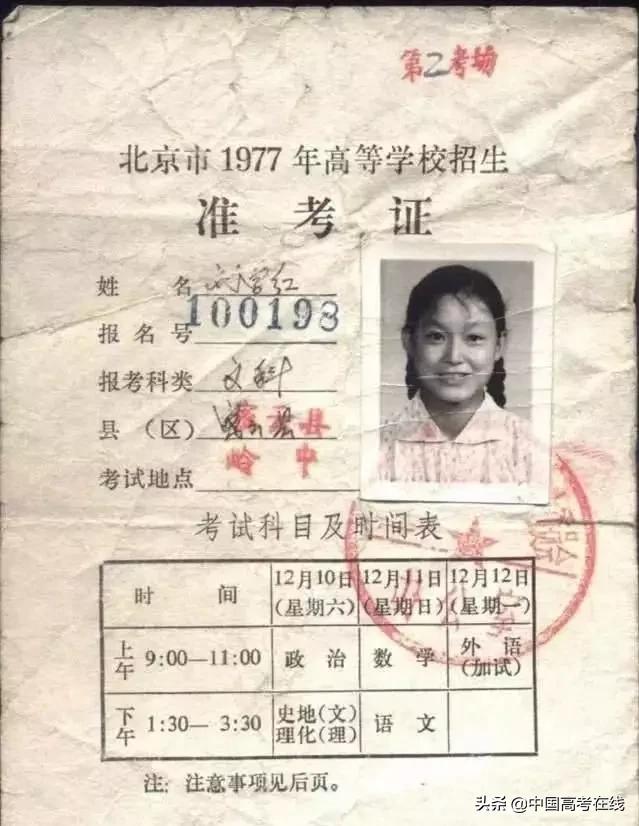 第2考场
北京市1977年高等学校招生
准考证
姓名 刘学红
报名号 100198
报考科类 文科
县（区） 密云县
考试地点
考试科目及时间表
时间 12月10日（星期六） 12月11日（星期日） 12月12日（星期一）
上午 9:00—11:00 政治 数学 外语（加试）
下午 1:30—3:30 史地（文）理化（理） 语文
注：注意事项见后页。
头条 @中国高考在线